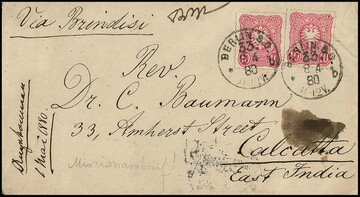 Via Brindisi
BERLIN S.
53.
9 4
80
Rev.
Dr. C. Baumann
33, Amherst Street
Calcutta
East India
Missionarsbrief!
1 Mai 1880.